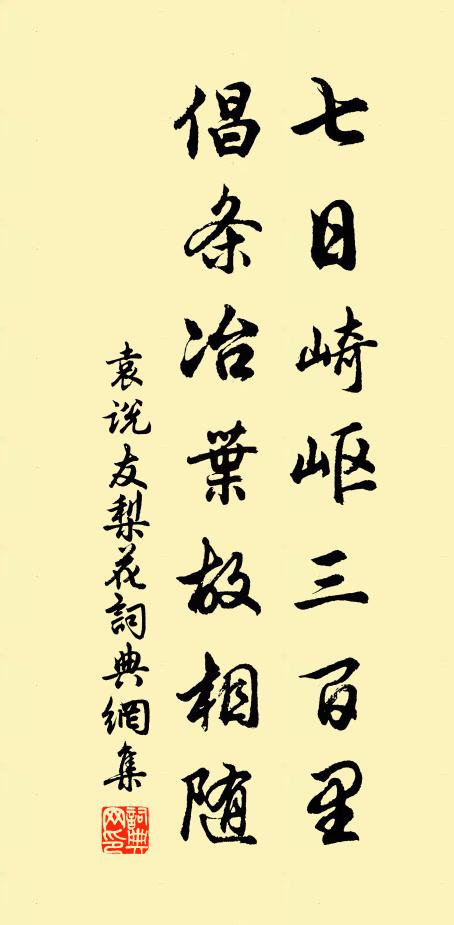 七日崎岖三百里
倡条冶葉故相随
袁说友梨花詞典網集
詞典網印